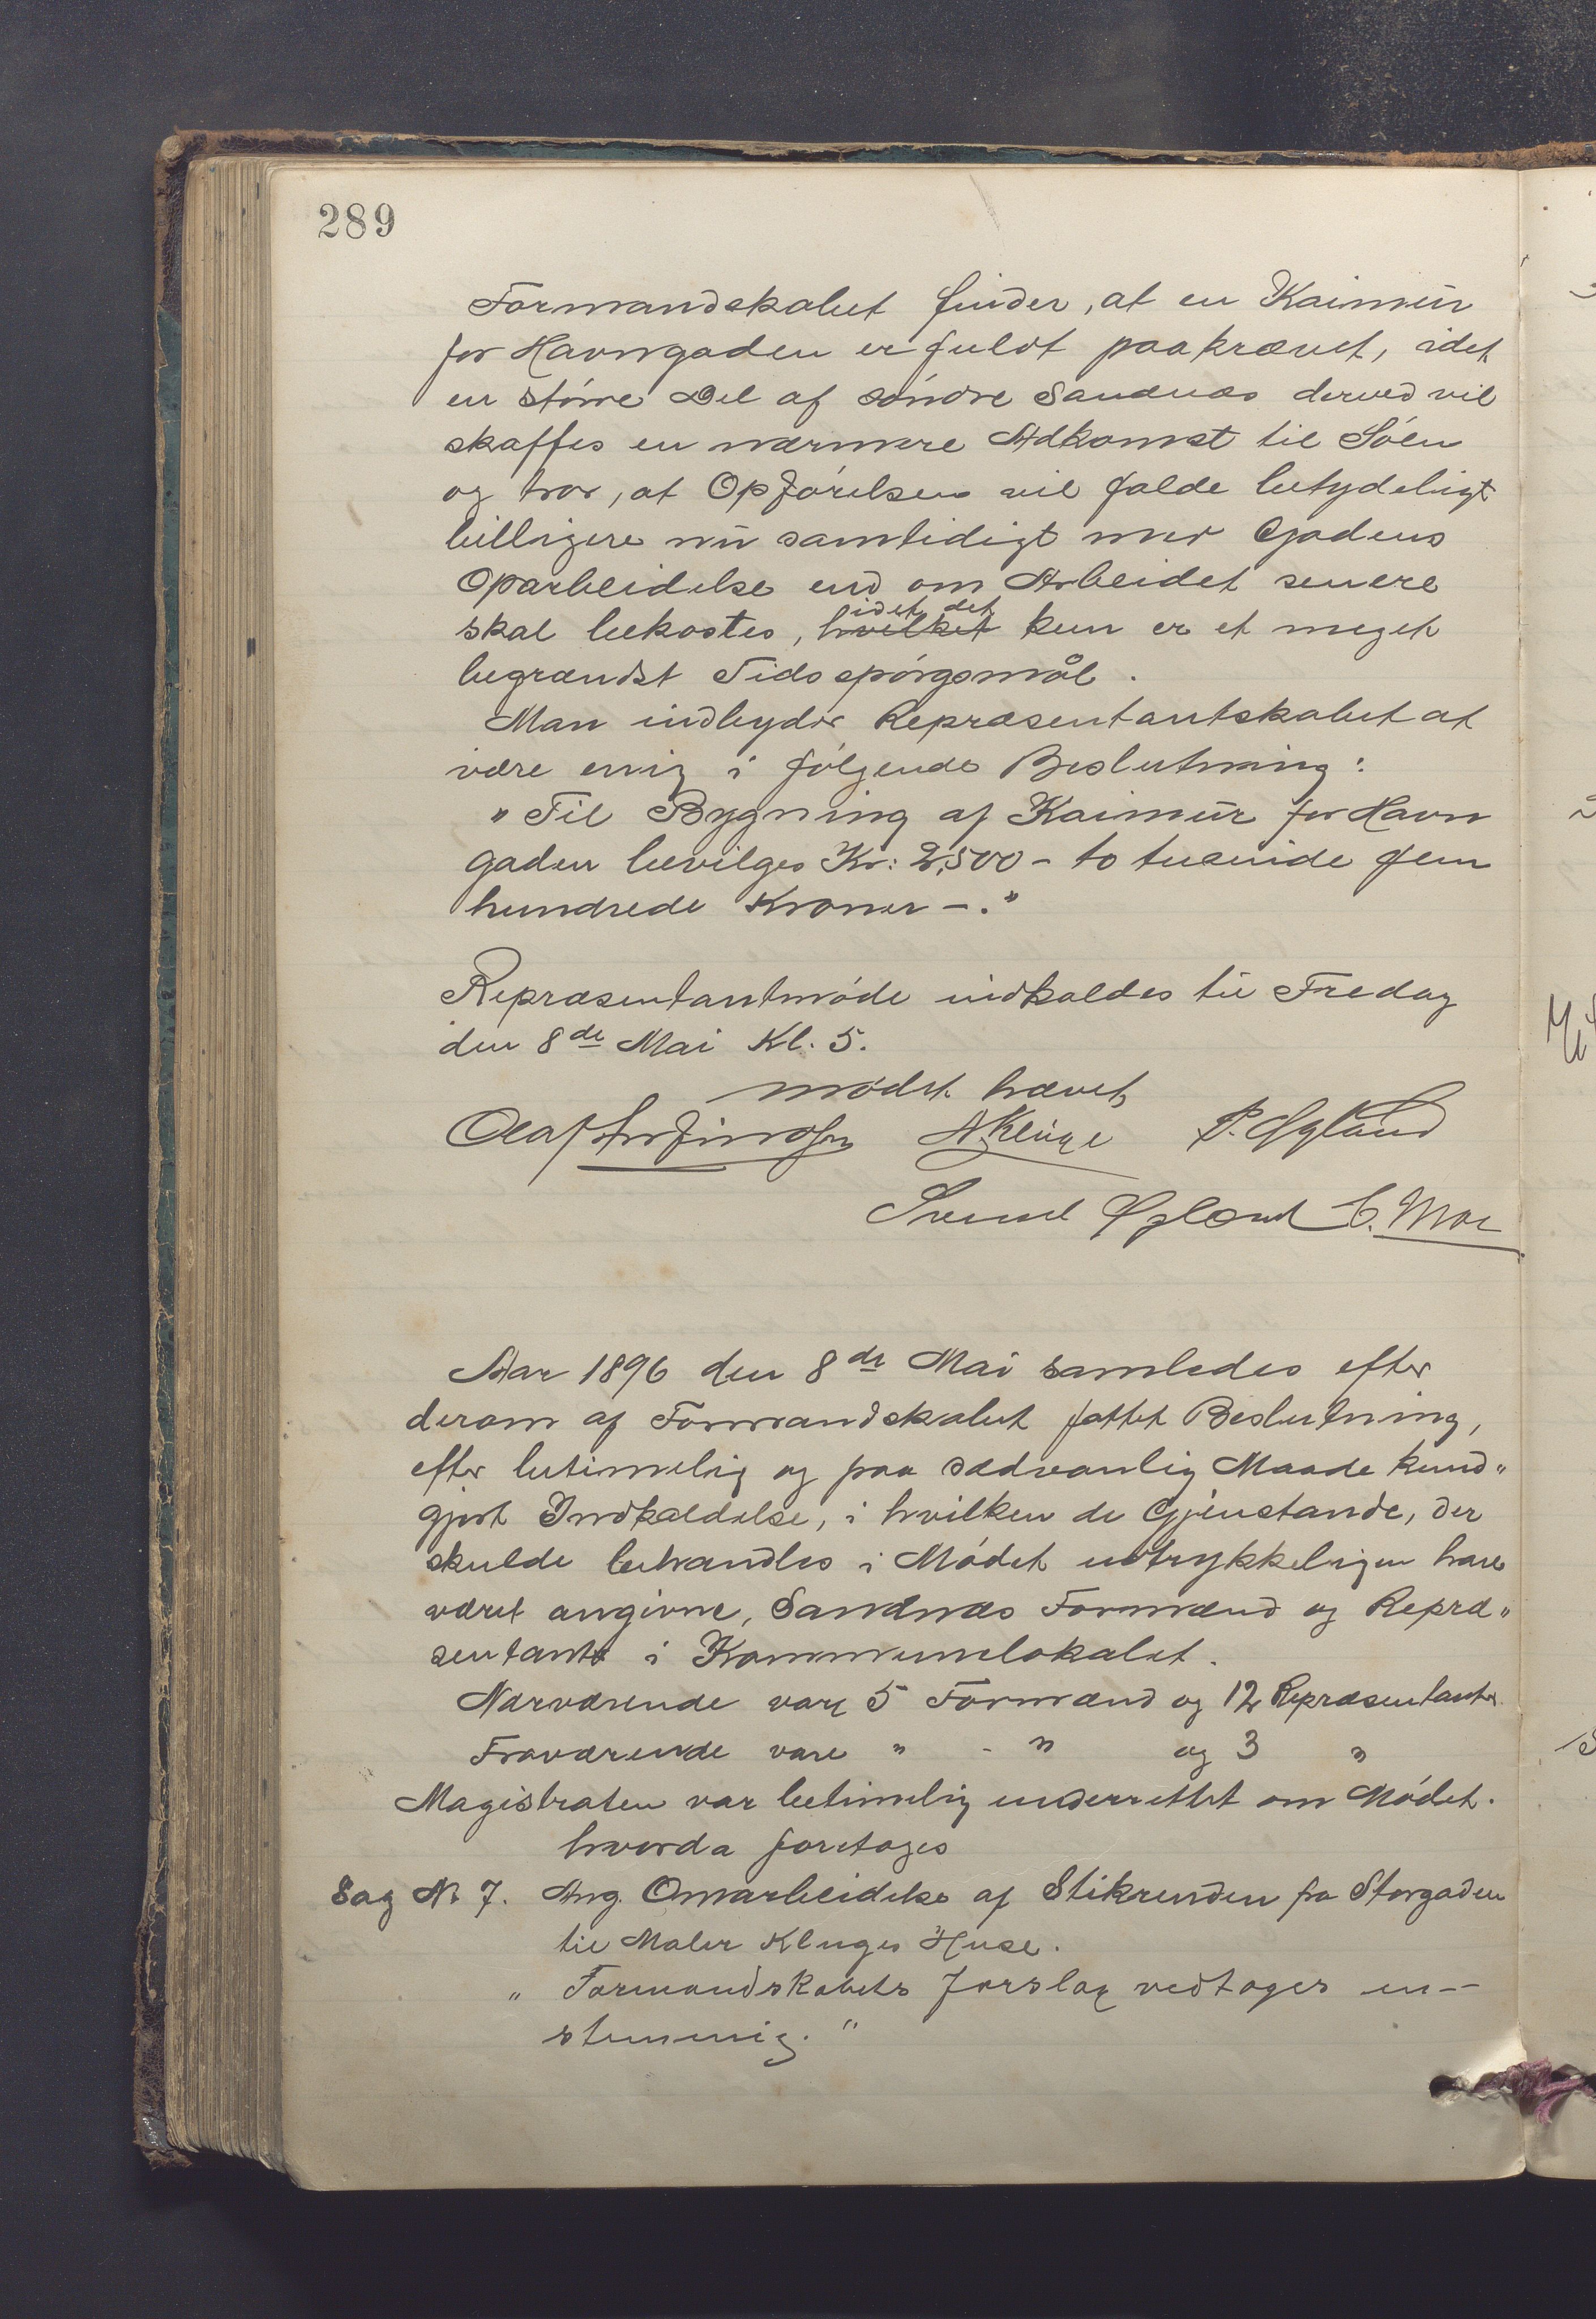 289
Formandskabet finder, at en Kaimur
for Havngaden er fuldt paakrævet, idet
en større Del af søndre Sandnæs derved vil
skaffes en nærmere Adkomst til Søen
og tror, at Opførelsen vil falde betydeligt
billigere nu samtidigt med Gadens
Oparbeidelse end om Arbeidet senere
idet det
skal bekostes, hvilket kun er et meget
begrændst Tidsspørgsmål.
Man indbyder Repræsentantskabet at
være enig i følgende Beslutning:
"Til Bygning af Kaimur for Havn
gaden bevilges Kr: 2,500 - to tusinde fem
hundrede Kroner -."
Repræsentantmøde indkaldes til Fredag
den 8de Mai Kl. 5.
Mødet hævet
A Kluge P. Øgland
Øglænd
Aar 1896 den 8de Mai samledes efter
derom af Formandskabet fattet Beslutning,
efter betimelig og paa sædvanlig Maade kund"
gjort Indkaldelse, i hvilken de Gjenstande, der
skulde behandles i Mødet udtrykkeligen have
været angivne, Sandnæs Formænd og Repræ"
sentanter i Kommunelokalet.
Nærværende vare 5 Formænd og 12 Repræsentanter
Fraværende vare " - " og 3 "
Magistraten var betimelig underrettet om Mødet.
hvorda foretoges
Sag No 7. Ang. Omarbeidelse af Stikrenden fra Storgaden
til Maler Kluges Huse.
" Formandskabets Forslag vedtages en--
stemmig. "